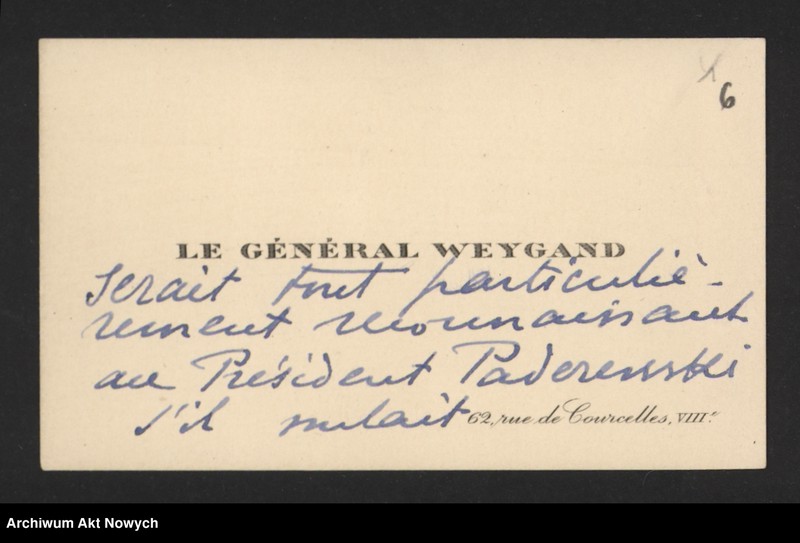 6
LE GÉNÉRAL WEYGAND
serait tout particuliè-
rement reconnaissant
au Président Paderewski
s'il voulait
62, rue de Courcelles, VIIIe.
Archiwum Akt Nowych